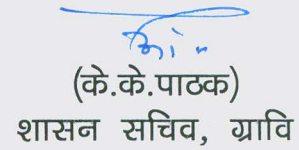 (के.के.पाठक)
शासन सचिव, ग्रावि